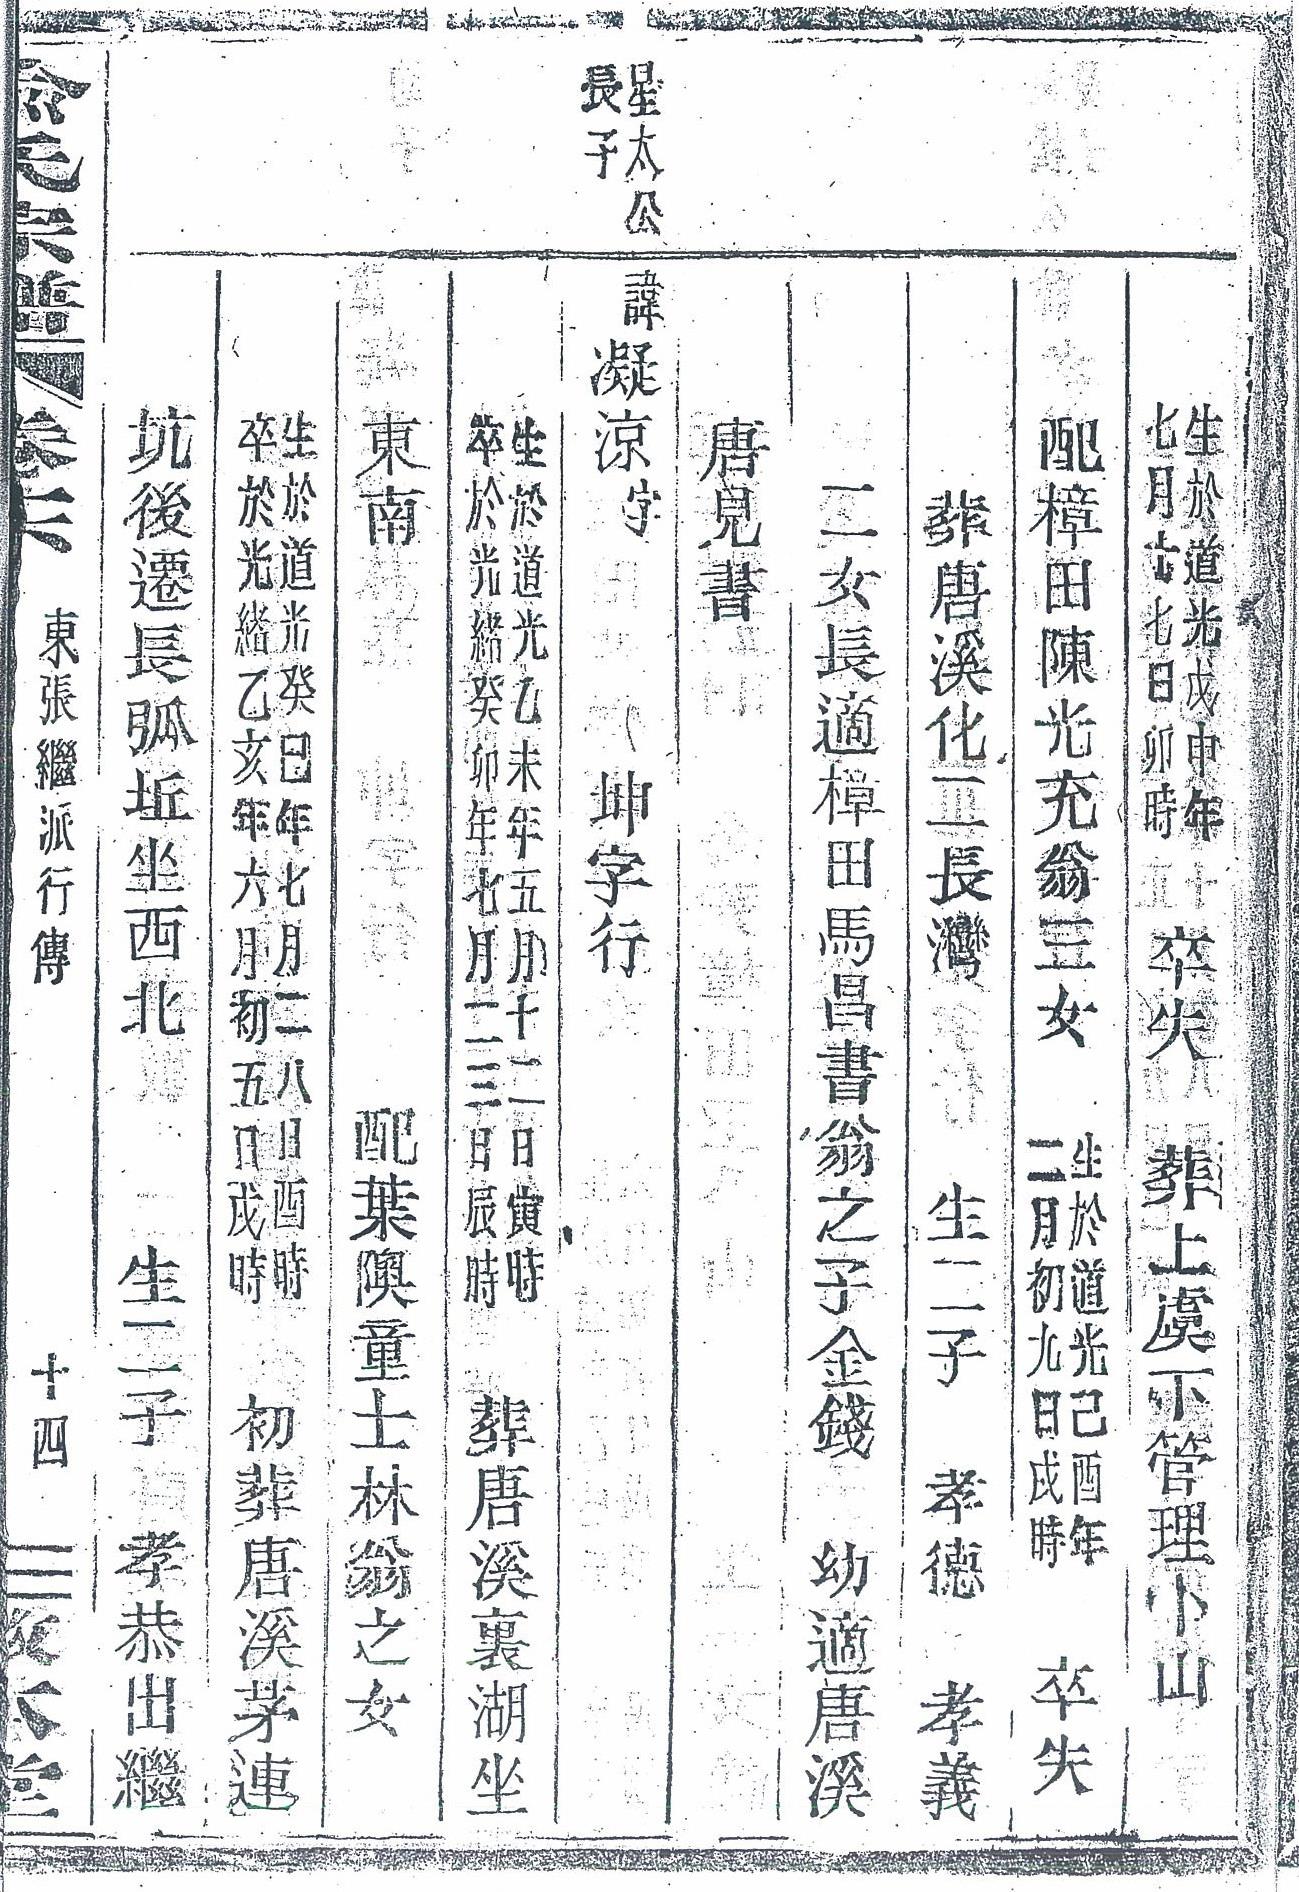 生於道光戊申年
七月十七日卯時
卒失
葬上虞下管理卜山
配樟田陳光充翁三女
生於道光己酉年
二月初九日戌時
卒失
葬唐溪化亚長灣
生二子
孝德
孝義
二女長適樟田馬昌書翁之子金錢
幼適唐溪
唐見書
星太公
長子
諱凝涼字
坤字行
生於道光乙未年五月十二日寅時
卒於光緒癸卯年七月二三日辰時
葬唐溪裏湖坐
東南
配葉隩童士林翁之女
生於道光癸巳年七月二八日酉時
卒於光緒乙亥年六月初五日戌時
初葬唐溪茅連
坑後遷長弧坵坐西北
生二子
孝恭出繼
俞氏宗譜
卷六
東張繼派行傳
十四